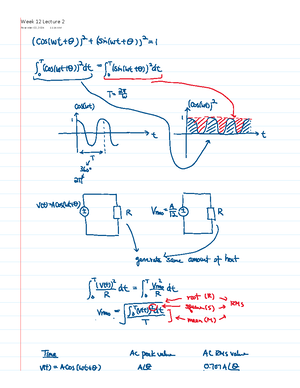 Week 12 Lecture 2
(cos(ωt+θ))² + (sin(ωt+θ))² = 1
∫₀ᵀ (cos(ωt+θ))² dt = ∫₀ᵀ (sin(ωt+θ))² dt
T = 2π/ω
cos(ωt)
(cos(ωt))²
1
1
t
t
T
360°
2π
v(t) = A cos(ωt+θ)
R
Vrms = A/√2
R
generate same amount of heat
∫₀ᵀ (v(t))²/R dt = ∫₀ᵀ Vrms²/R dt
Vrms = √(∫₀ᵀ (v(t))² dt / T)
root (R)
square (S)
mean (M)
RMS
Time
AC peak value
AC RMS value
v(t) = A cos(ωt+θ)
A∠θ
0.707A∠θ